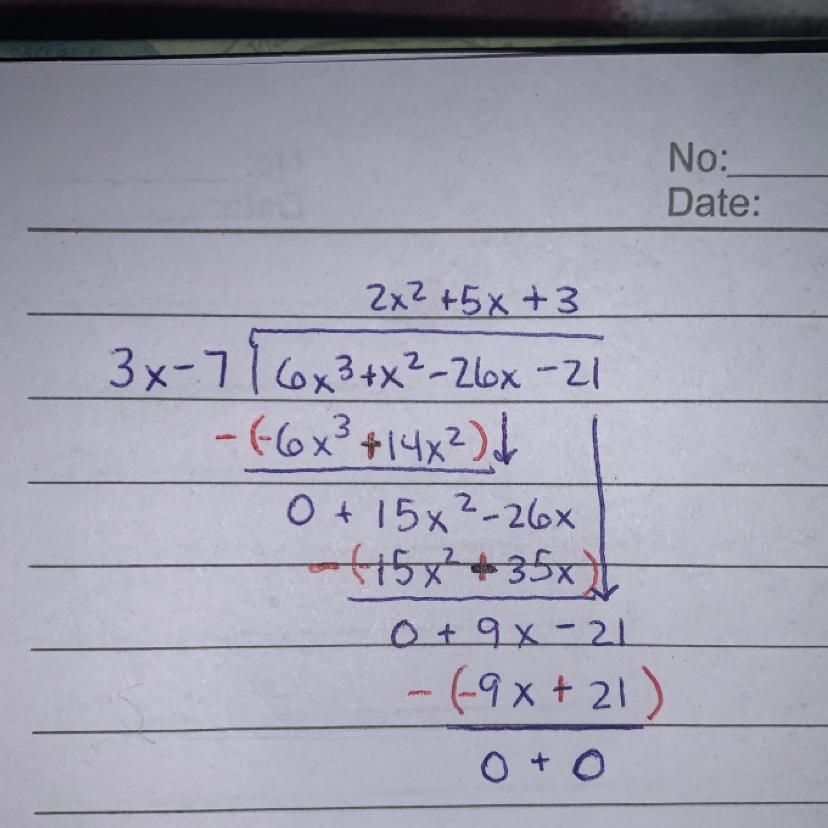 No:
Date:
2x² + 5x + 3
3x - 7 6x³ + x² - 26x - 21
- (-6x³ + 14x²) ↓
0 + 15x² - 26x
- (-15x² + 35x)
0 + 9x - 21
- (-9x + 21)
0 + 0